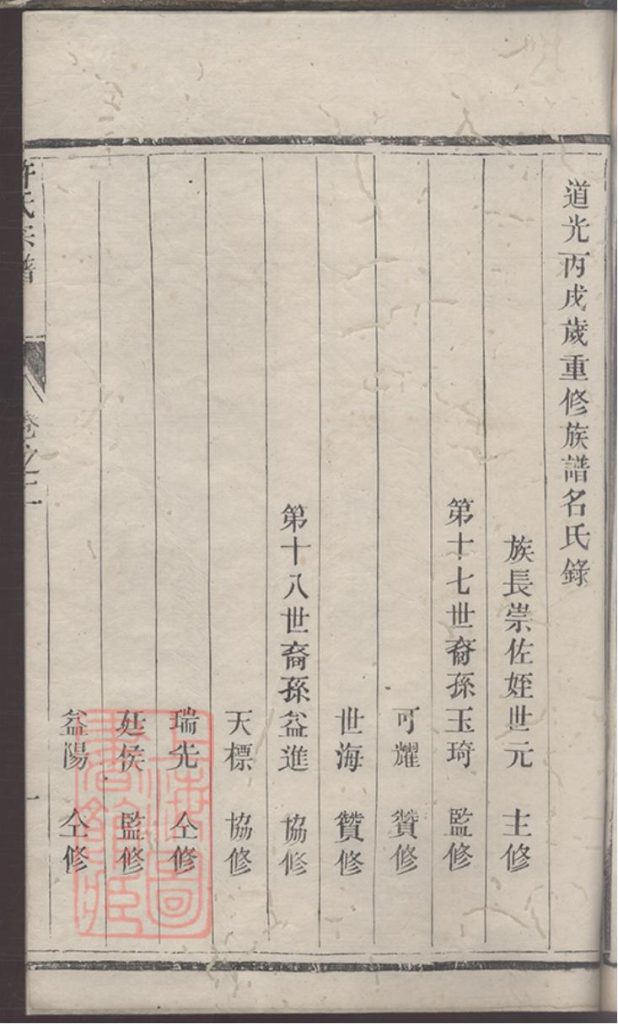 道光丙戌歲重修族譜名氏錄
族長崇佐姪世元　主修
第十七世裔孫玉琦　監修
可耀　贊修
世海　贊修
第十八世裔孫益進　協修
天標　協修
瑞先　仝修
廷侯　監修
益陽　仝修
許氏宗譜
卷之二
一